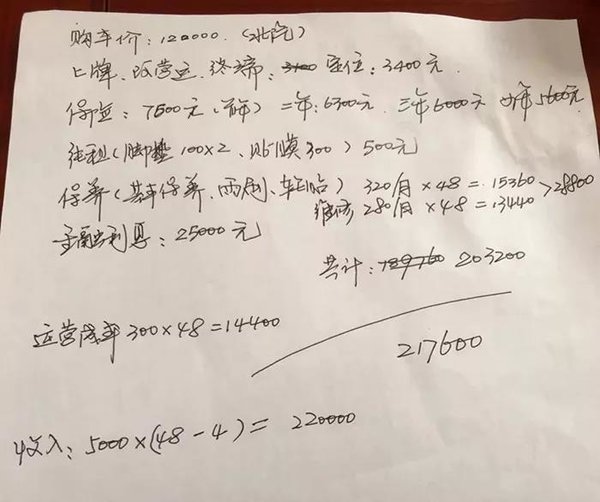 购车价：120000.（北汽）
上牌、改营运、终端、3100 定位：3400元.
保险：7500元（首年） 二年：6300元. 三年6000元 四年5600元
纯租（脚垫100×2、贴膜300）500元
保养（基本保养、雨刷、轮胎）320/月 ×48 = 15360 > 28800
维修 280/月 ×48 = 13440
金融利息：25000元
共计：189760 203200
运营成本300×48=14400
217600
收入：5000×(48-4)= 220000